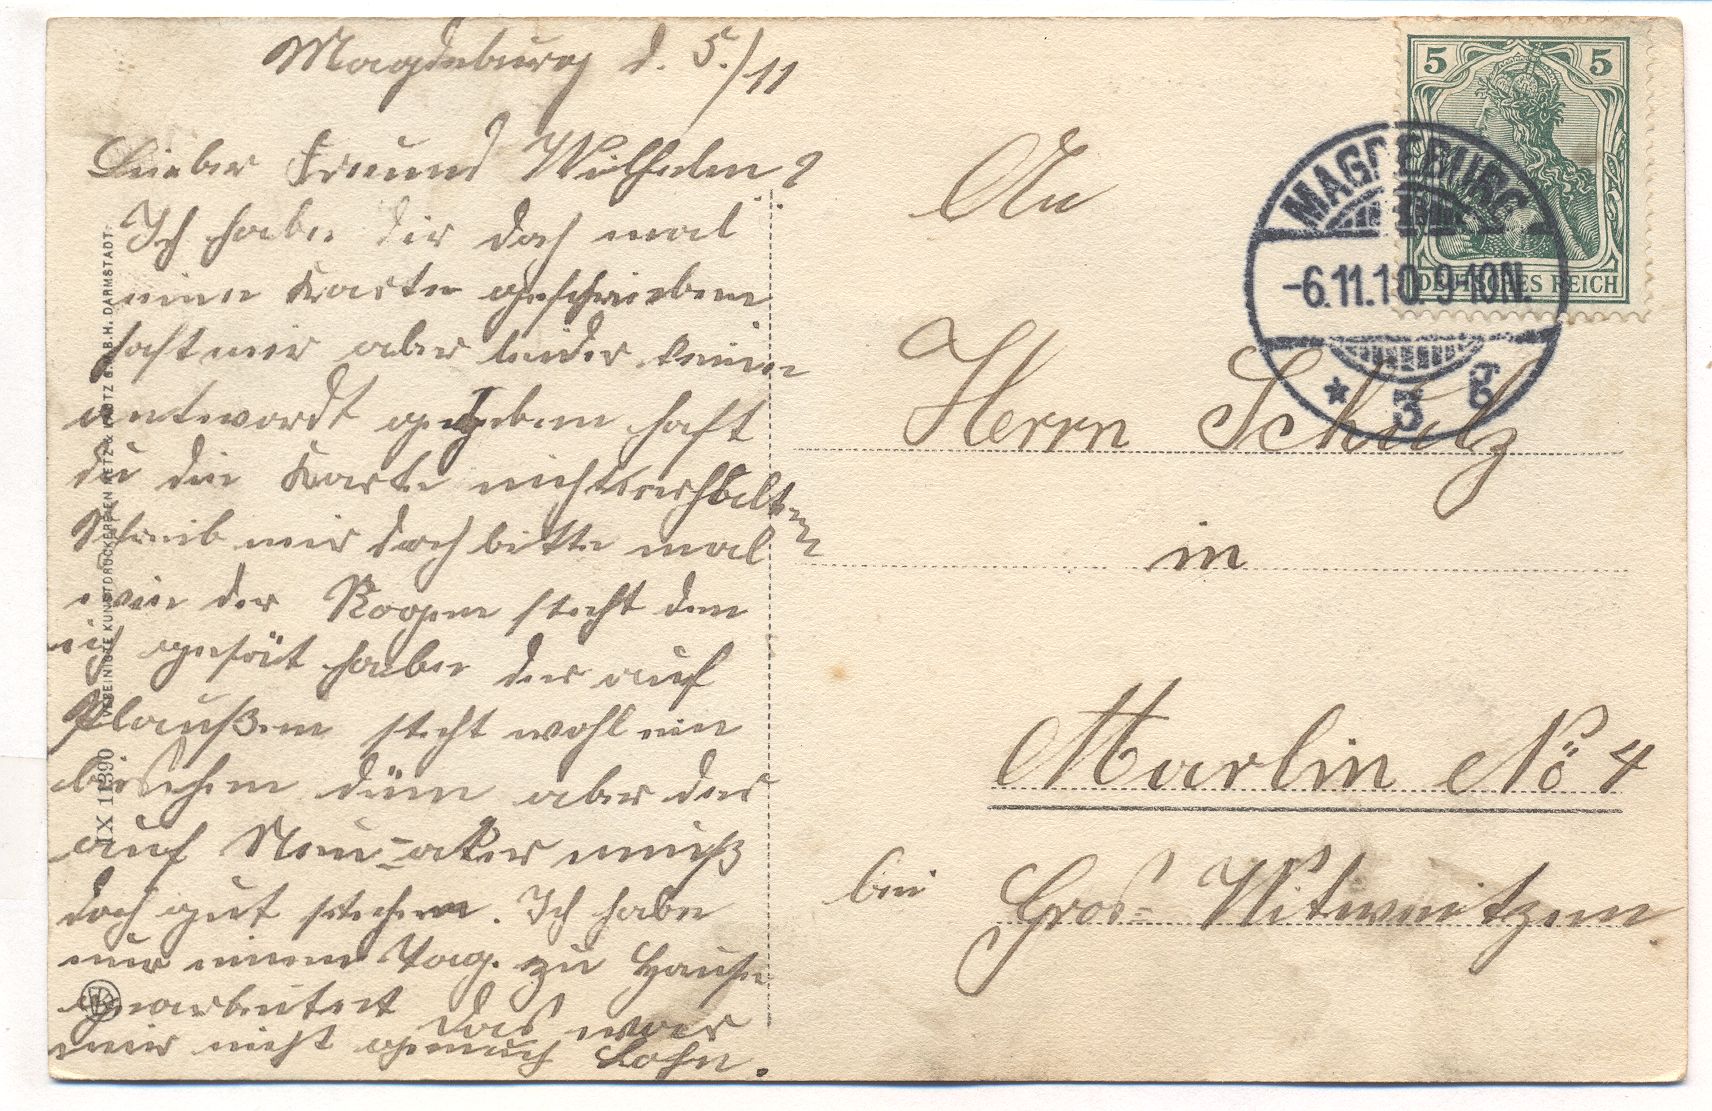 Magdeburg d. 5./11
Lieber Freund Wilhelm!
Ich habe dir doch mal
eine Karte geschrieben
hast mir aber leider keine
antwordt gegeben hast
du die Karte nicht erhalten
Schreib mir doch bitte mal
wie der Rogen steht den
ich gesät habe der auf
Plaußen steht wohl ein
bischen dün aber der
auf Neu-aker muß
doch gut stehen. Ich habe
nur einen Tag. zu Hause
gearbeitet das war
mir nicht genuch Lohn.
VEREINIGTE KUNSTDRUCKEREIEN METZ & LAUTZ G.M.B.H. DARMSTADT.
IX 11390
5 5
DEUTSCHES REICH
MAGDEBURG
-6.11.10. 9-10N.
* 3 g
An
Herrn Schulz
in
Marlin No 4
bei Gros-Witweitzen.